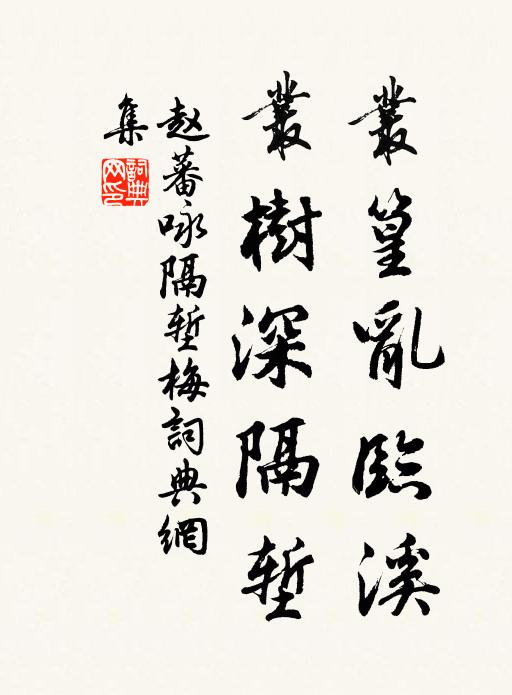 叢篁亂臨溪
叢樹深隔塹
赵蕃咏隔塹梅詞典網
集
詞典網印